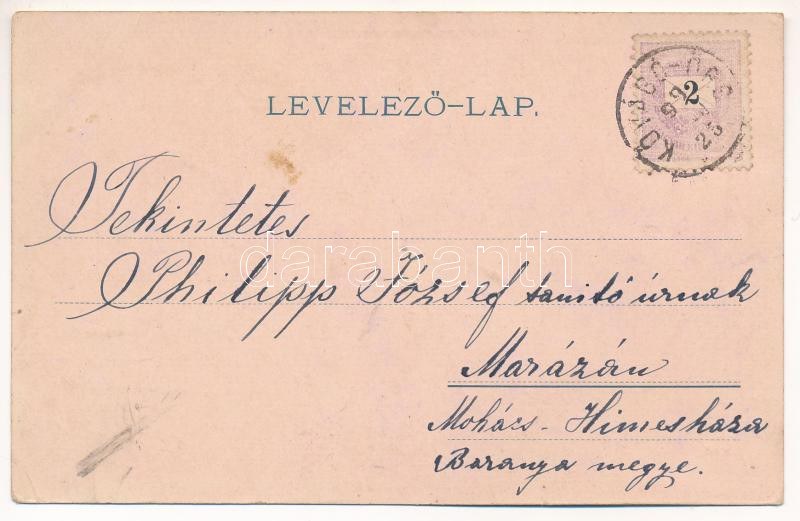 LEVELEZŐ-LAP.
2
KŐVÁGÓ-ÖRS
Tekintetes
Philipp József tanító úrnak
Marázán
Mohács - Himesháza
Baranya megye.
darabanth